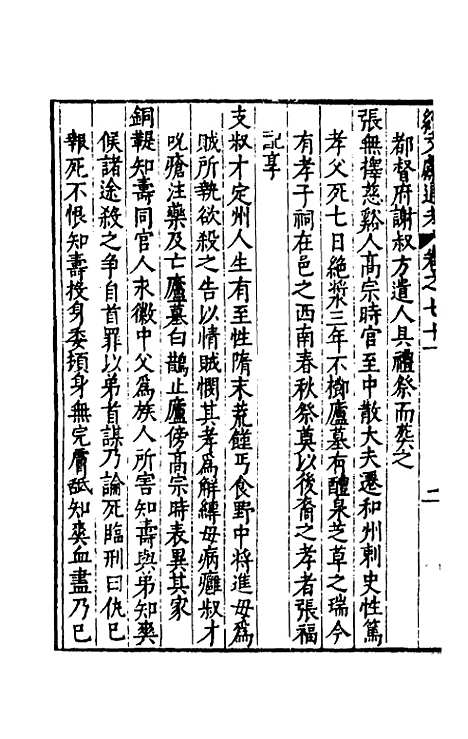 續文獻通考 卷之七十一 二
都督府謝叔方遣人具禮祭而葬之
張無擇慈谿人高宗時官至中散大夫遷和州刺史性篤
孝父死七日絕漿三年不櫛廬墓有醴泉芝草之瑞今
有孝子祠在邑之西南春秋祭奠以後裔之孝者張福
記享
支叔才定州人生有至性隋末荒饉丐食野中將進母爲
賊所執欲殺之告以情賊憫其孝爲解縛母病癰叔才
吮瘡注藥及亡廬墓白鵲止廬傍高宗時表異其家
銅鞮知壽同官人求徽中父爲族人所害知壽與弟知爽
候諸途殺之爭自首罪以弟首謀乃論死臨刑曰仇已
報死不恨知壽投身委頓身無完膚舐知爽血盡乃已